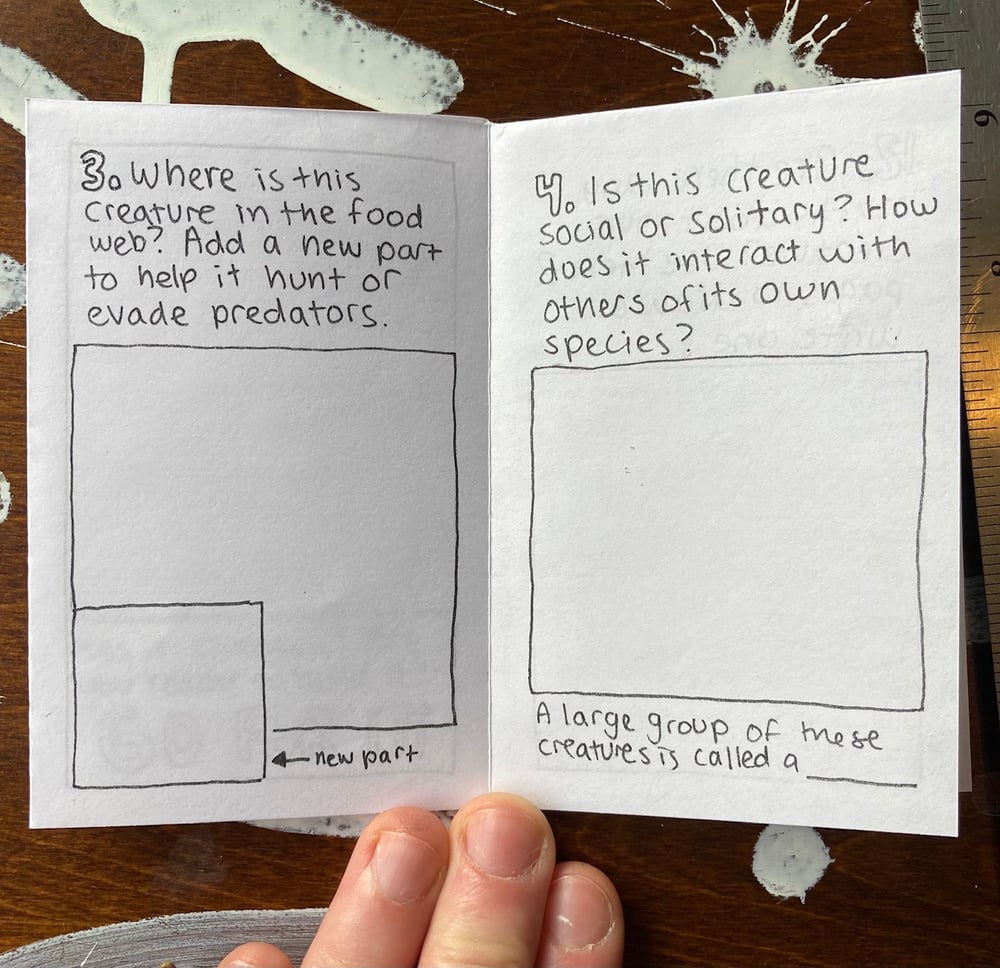 3. Where is this
creature in the food
web? Add a new part
to help it hunt or
evade predators.
new part
4. Is this creature
social or solitary? How
does it interact with
others of its own
species?
A large group of these
creatures is called a
6